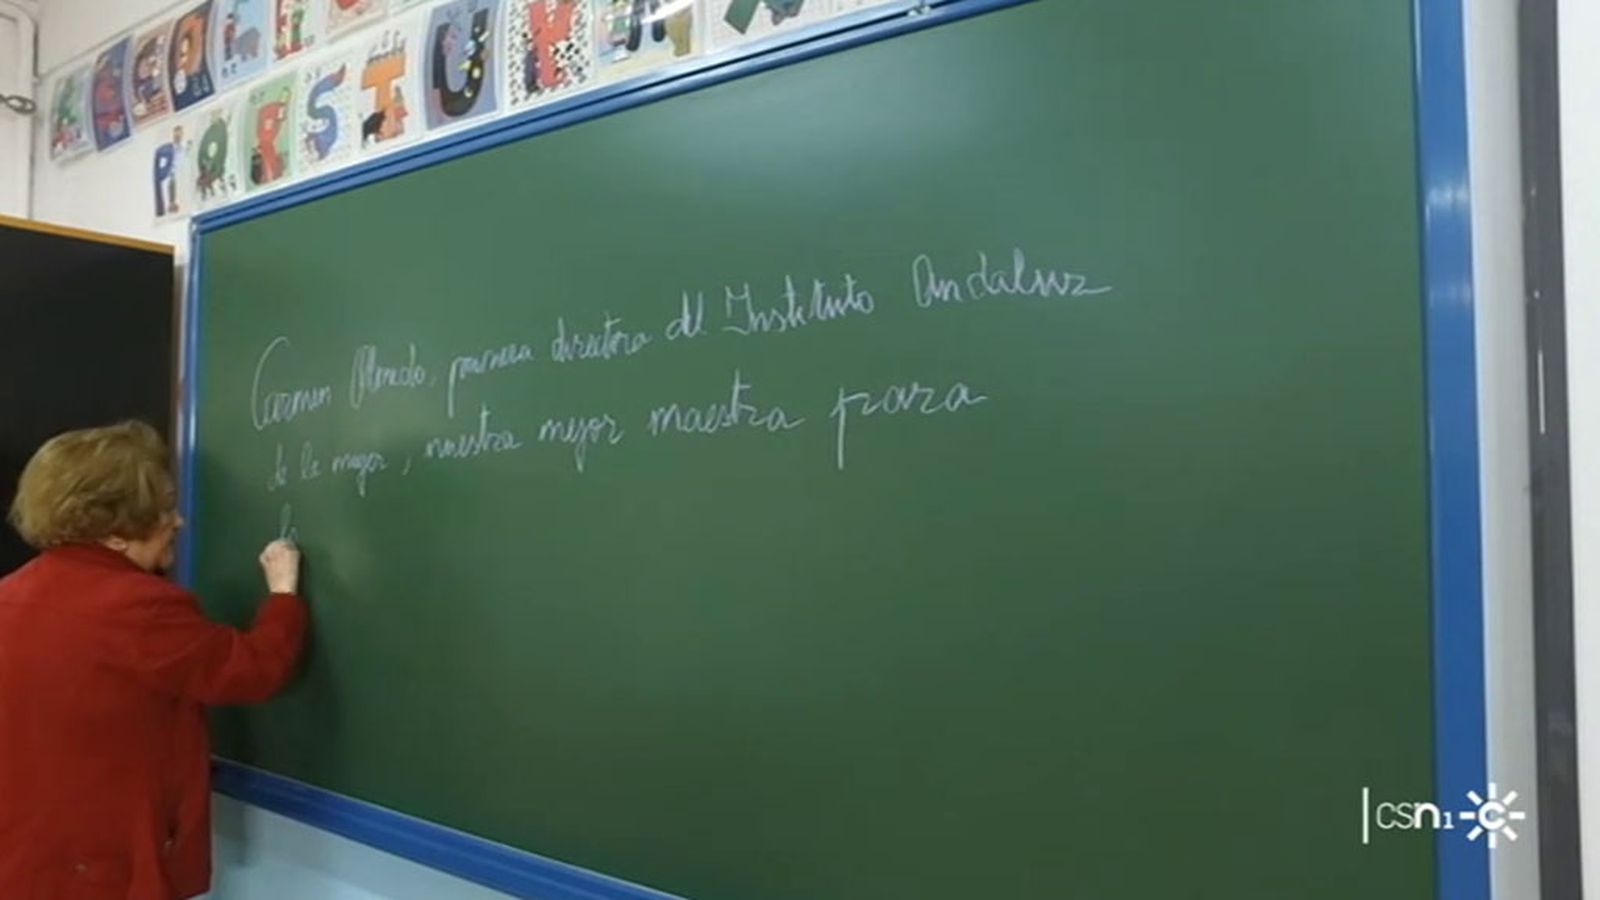 P Q R S T U V
Carmen Olmedo, primera directora del Instituto Andaluz
de la mujer, nuestra mejor maestra para
la
csn1